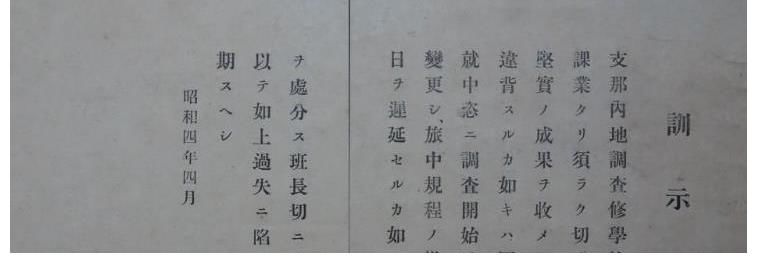 訓示
支那內地調査修學
課業タリ須ラク切
堅實ノ成果ヲ收メ
違背スルカ如キハ
就中恣ニ調査開始
變更シ、旅中規程ノ
日ヲ遲延セルカ如
ヲ處分ス班長切ニ
以テ如上過失ニ陷
期スヘシ
昭和四年四月